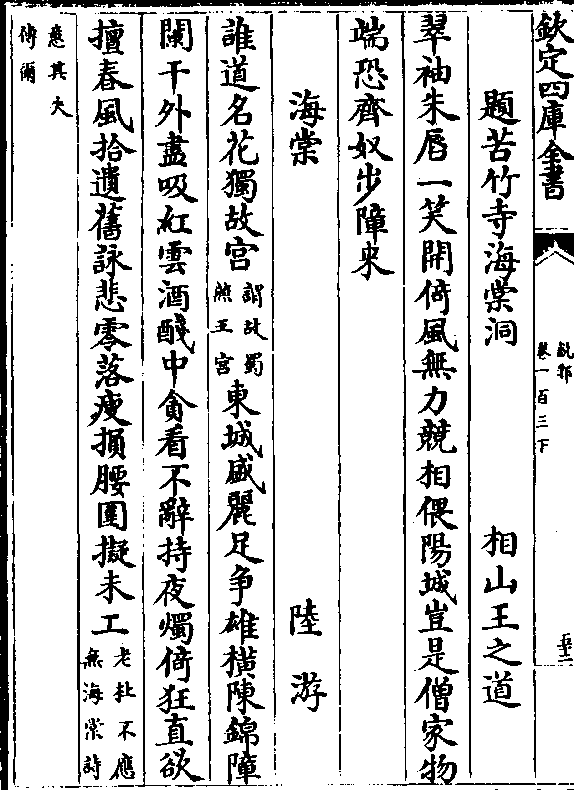 欽定四庫全書
說郛
卷一百三下
題苦竹寺海棠洞 相山王之道
翠袖朱唇一笑開倚風無力競相偎陽城豈是僧家物
端恐齊奴步障来
海棠 陸游
誰道名花獨故宮謂故蜀燕王宮東城盛麗足爭雄橫陳錦障
闌干外盡吸紅雲酒醆中貪看不辭持夜燭倚狂直欲
擅春風拾遺舊詠悲零落瘦損腰圍擬未工老杜不應無海棠詩
意其失傳爾